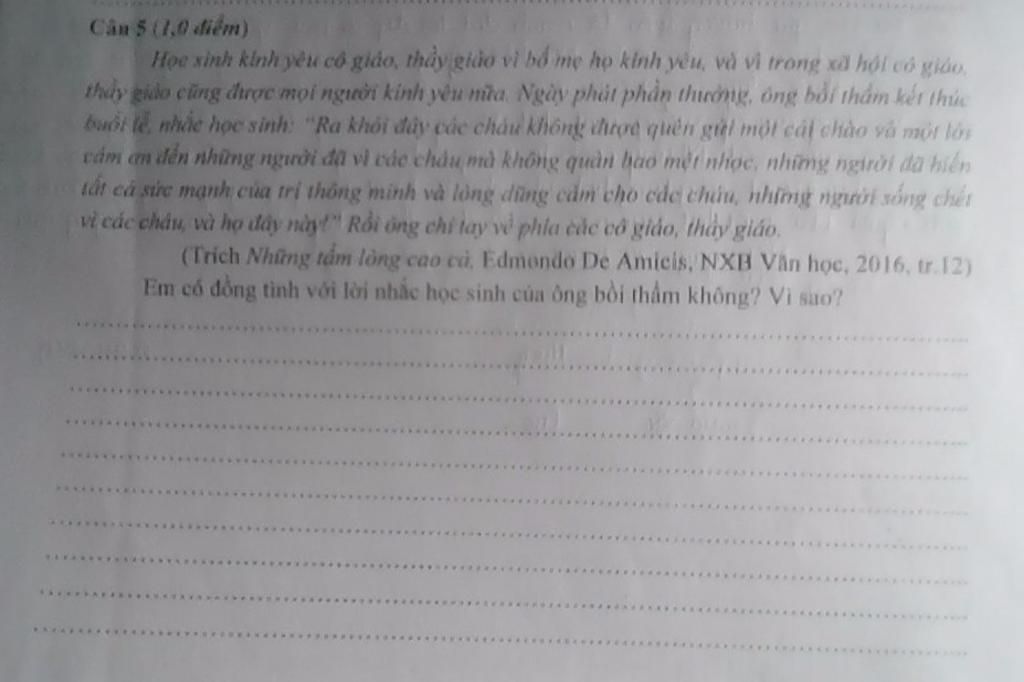 Câu 5 (1,0 điểm)
Học sinh kính yêu cô giáo, thầy giáo vì bố mẹ họ kính yêu, và vì trong xã hội cô giáo,
thầy giáo cũng được mọi người kính yêu nữa. Ngày phát phần thưởng, ông bồi thẩm kết thúc
buổi lễ, nhắc học sinh: "Ra khỏi đây các cháu không được quên gửi một cái chào và một lời
cảm ơn đến những người đã vì các cháu mà không quản bao mệt nhọc, những người đã hiến
tất cả sức mạnh của trí thông minh và lòng dũng cảm cho các cháu, những người sống chết
vì các cháu, và họ đây này!" Rồi ông chỉ tay về phía các cô giáo, thầy giáo.
(Trích Những tấm lòng cao cả, Edmondo De Amicis, NXB Văn học, 2016, tr.12)
Em có đồng tình với lời nhắc học sinh của ông bồi thẩm không? Vì sao?